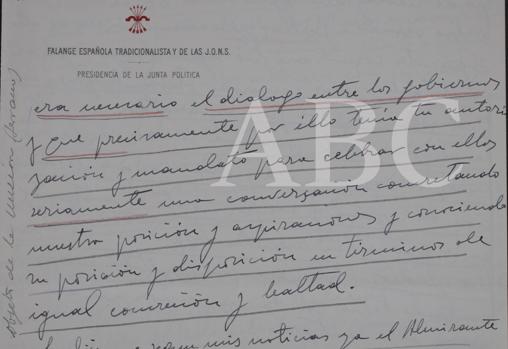 FALANGE ESPAÑOLA TRADICIONALISTA Y DE LAS J.O.N.S.
PRESIDENCIA DE LA JUNTA POLITICA
era necesario el dialogo entre los gobiernos
y que precisamente por ello tenía tu autori
zación y mandato para celebrar con ellos
seriamente una conversación concretando
nuestra posición y aspiraciones y conociendo
su posición y disposición en terminos de
igual concreción y lealtad.
mis noticias ya el Almirante
objeto de la
ABC